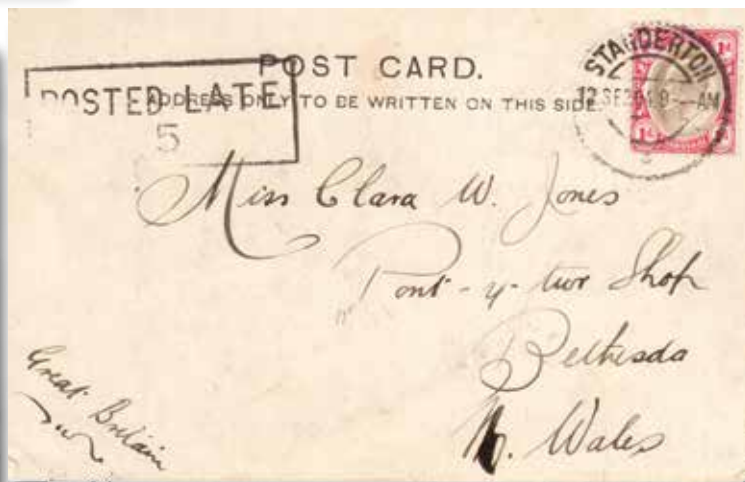 POST CARD.
ADDRESS ONLY TO BE WRITTEN ON THIS SIDE.
POSTED LATE
5
STANDERTON
AM
1d 1d
Miss Clara W. Jones
Pont-y-twr Shop
Bethesda
N. Wales
Great Britain